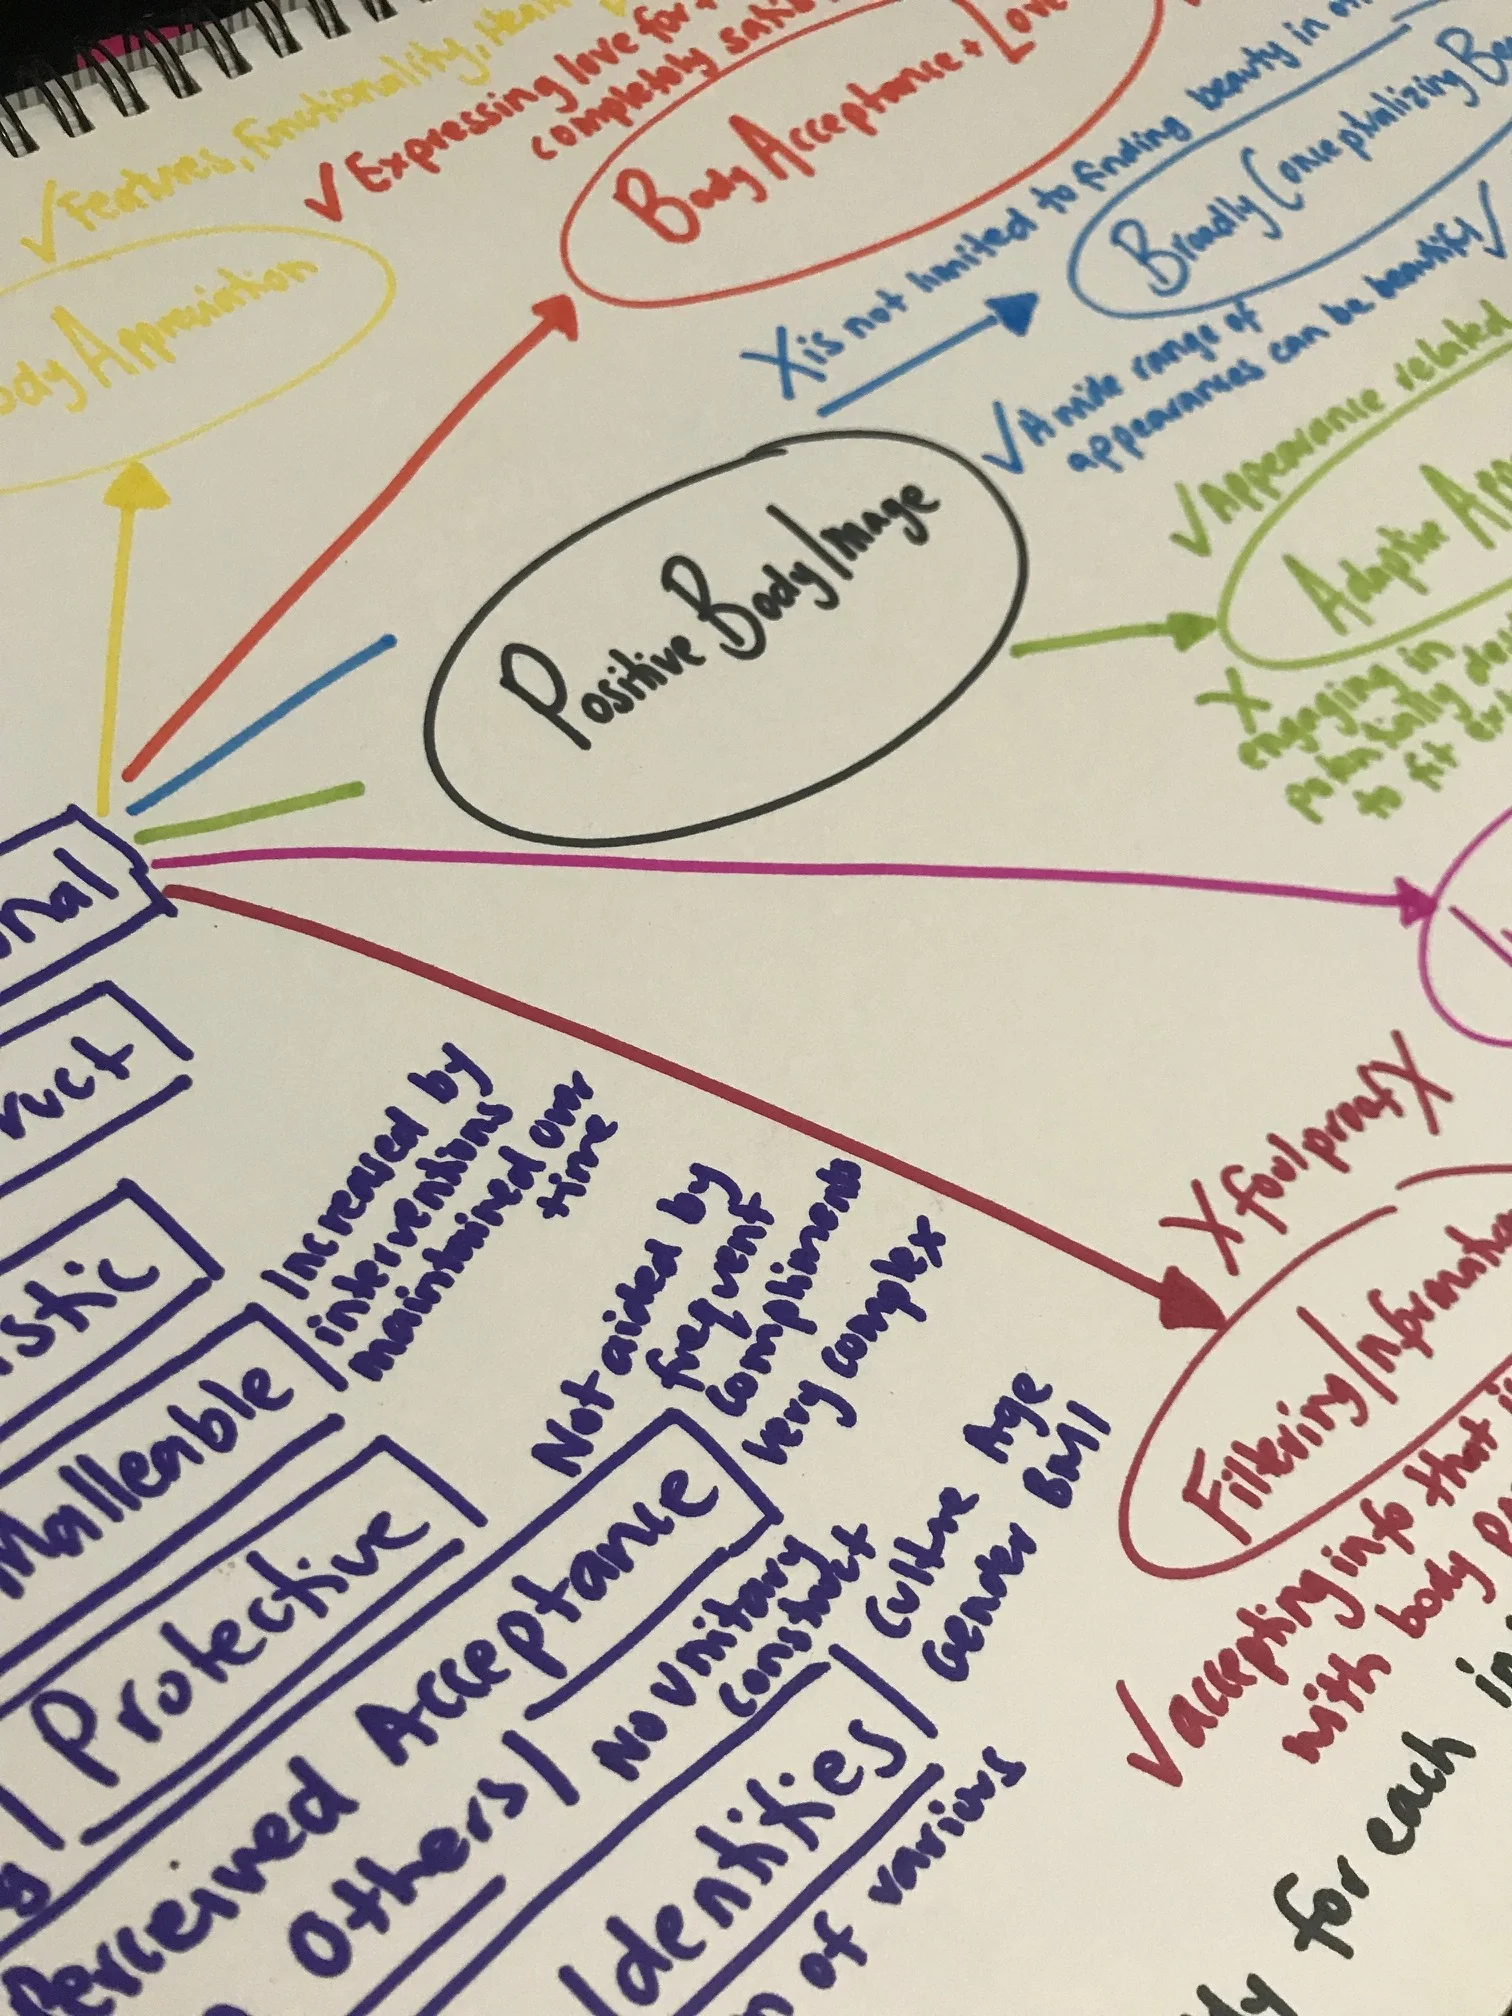 ✓ Features, Functionality,
ody Appreciation
✓ Expressing love for
completely satis
Body Acceptance + Love
X is not limited to finding beauty in
Broadly Conceptualizing Be
✓ A wide range of
appearances can be beautify ✓
✓ Appearance related
Adaptive App
X
engaging in
potentially des
to fit ex
Positive Body Image
onal
ruct
istic
Malleable
Increased by
interventions
maintained over
time
Protective
Perceived Acceptance
Others
Not aided by
frequent
compliments
very complex
No unitary
construct
Identities
Culture Age
Gender BMI
of various
X foolproof X
Filtering Informatio
✓ accepting info that i
with body po
for each in